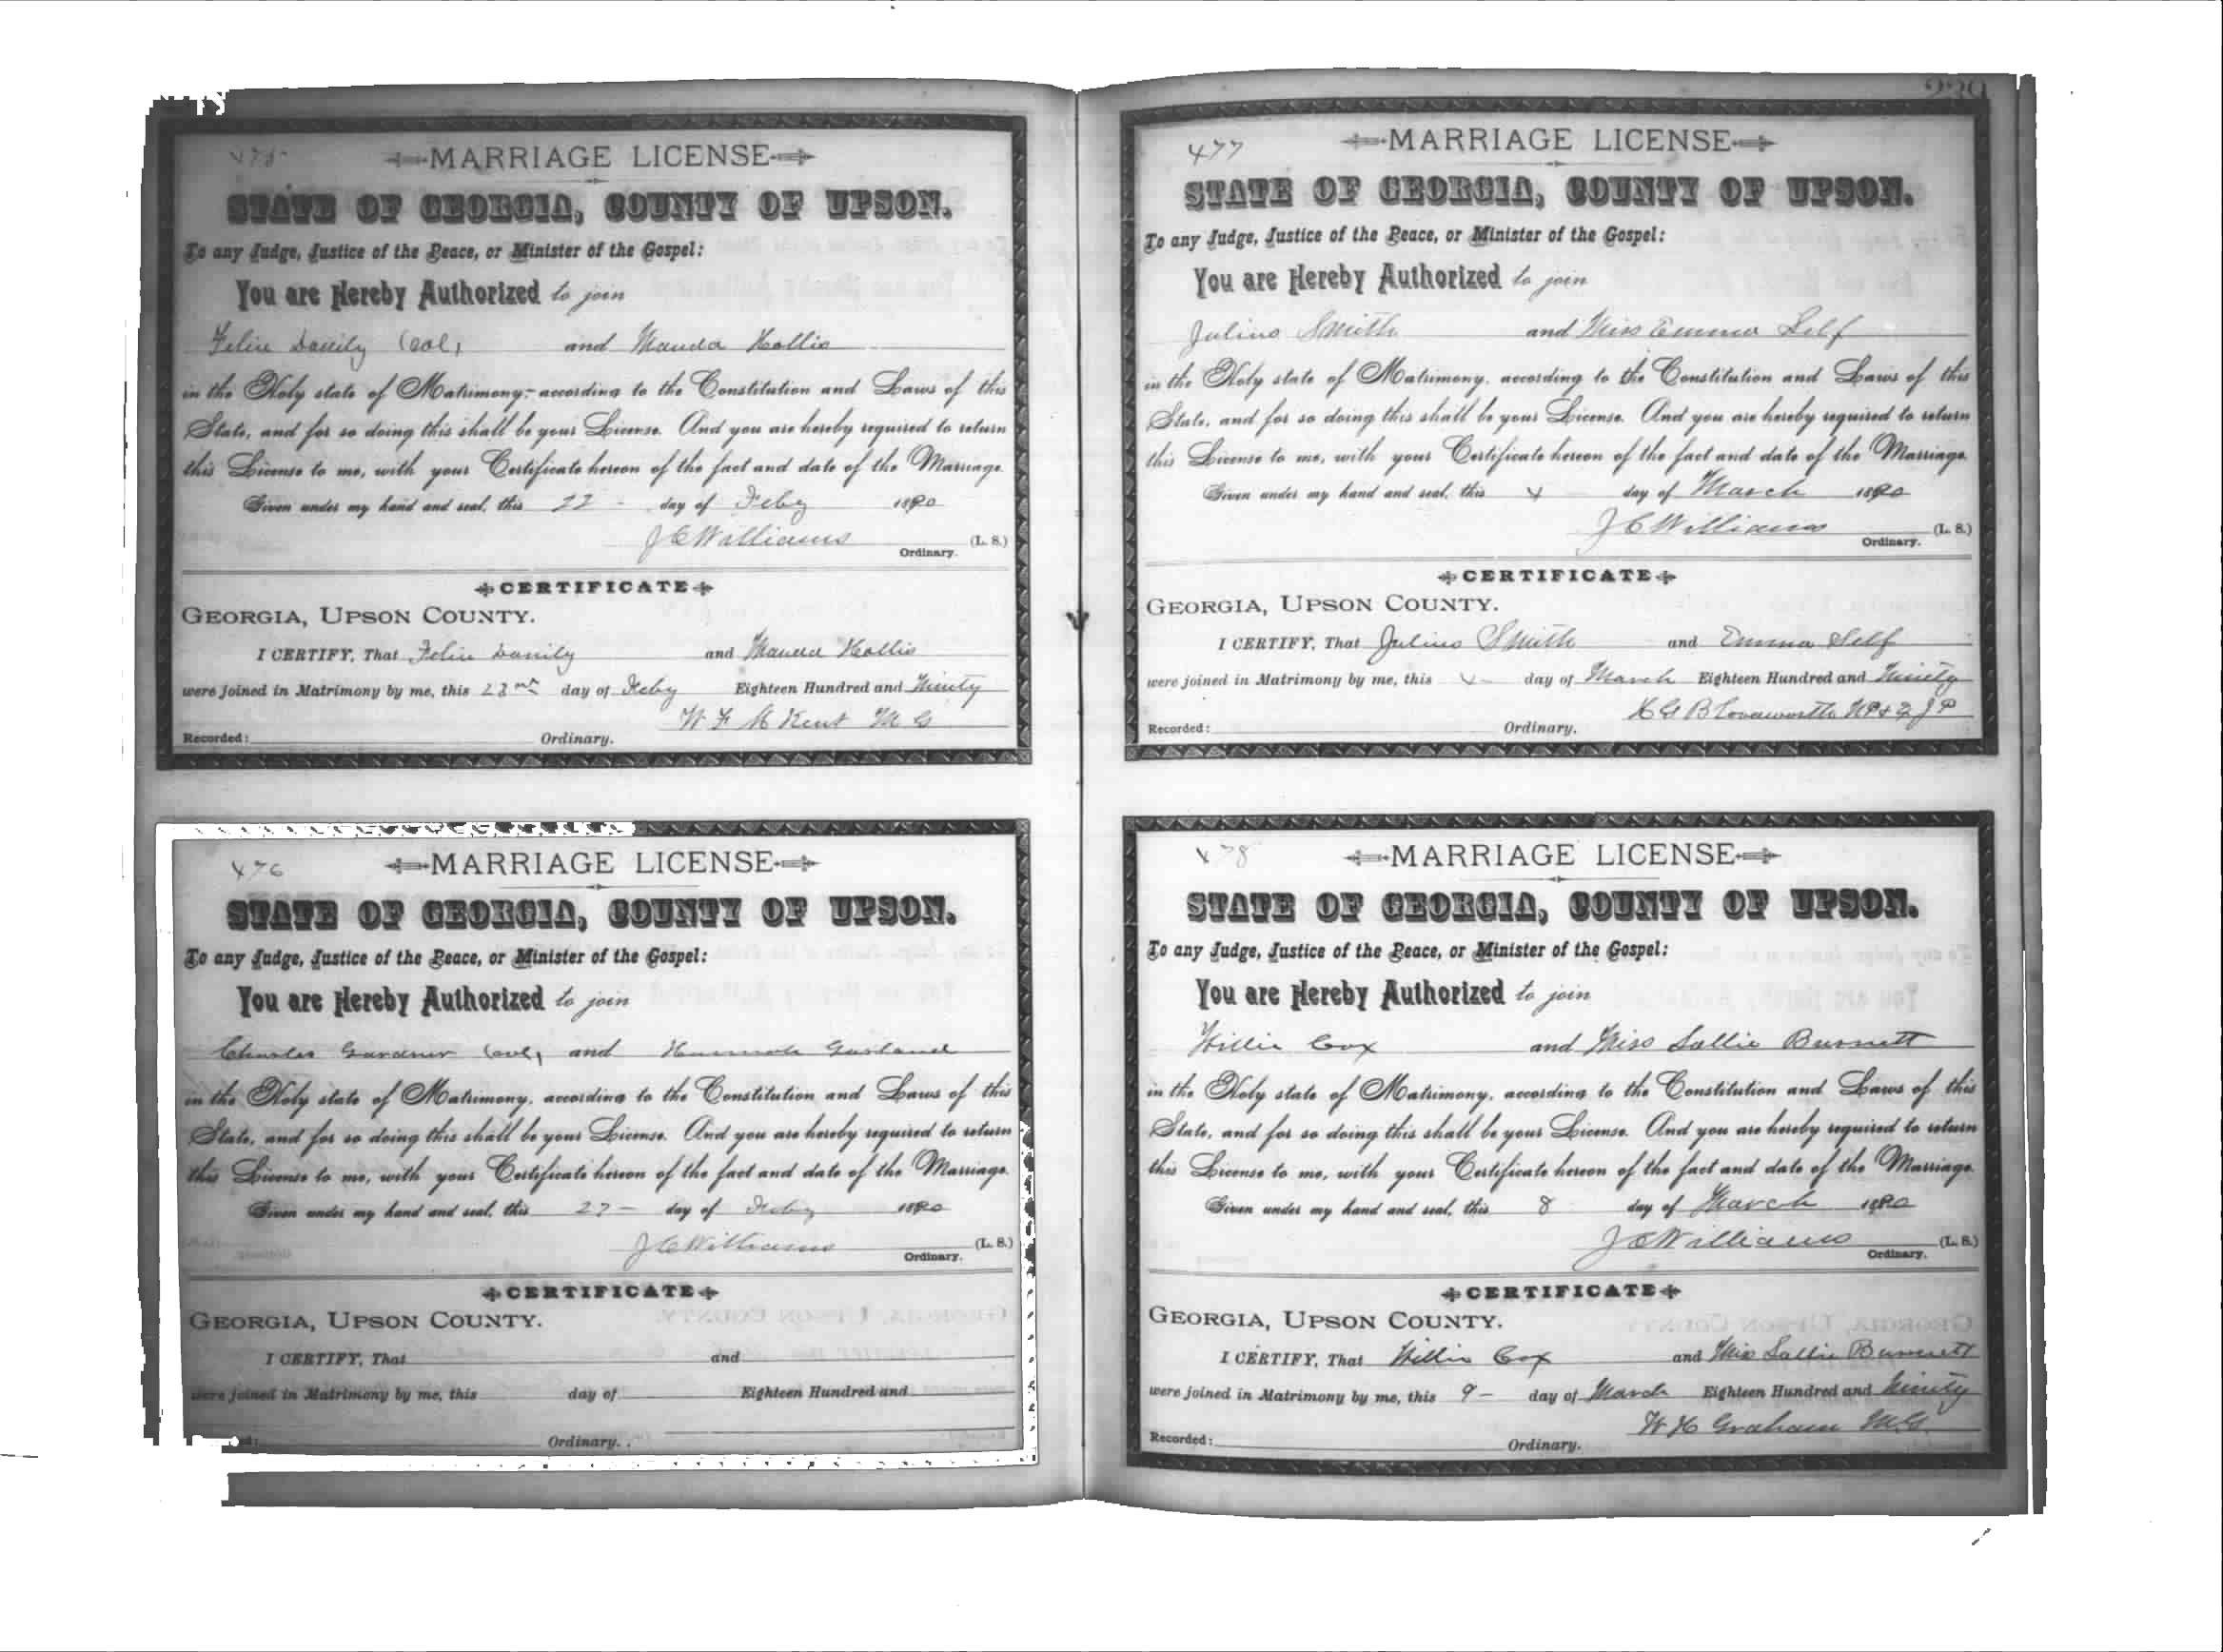 475
MARRIAGE LICENSE
STATE OF GEORGIA, COUNTY OF UPSON.
To any Judge, Justice of the Peace, or Minister of the Gospel:
You are Hereby Authorized to join
(Col) and Hollis
in the Holy state of Matrimony, according to the Constitution and Laws of this
State, and for so doing this shall be your License. And you are hereby required to return
this License to me, with your Certificate hereon of the fact and date of the Marriage.
Given under my hand and seal, this 22 - day of Feby 1890
J C Williams (L. S.)
Ordinary.
CERTIFICATE
GEORGIA, UPSON COUNTY.
I CERTIFY, That and Hollis
were joined in Matrimony by me, this day of Feby Eighteen Hundred and Ninety
W F M Kent M G
Recorded: Ordinary.
476
MARRIAGE LICENSE
STATE OF GEORGIA, COUNTY OF UPSON.
To any Judge, Justice of the Peace, or Minister of the Gospel:
You are Hereby Authorized to join
Charles Gardner (Col) and Hannah Garland
in the Holy state of Matrimony, according to the Constitution and Laws of this
State, and for so doing this shall be your License. And you are hereby required to return
this License to me, with your Certificate hereon of the fact and date of the Marriage.
Given under my hand and seal, this 27 - day of Feby 1890
J C Williams (L. S.)
Ordinary.
CERTIFICATE
GEORGIA, UPSON COUNTY.
I CERTIFY, That and
were joined in Matrimony by me, this day of Eighteen Hundred and
Ordinary.
239
477
MARRIAGE LICENSE
STATE OF GEORGIA, COUNTY OF UPSON.
To any Judge, Justice of the Peace, or Minister of the Gospel:
You are Hereby Authorized to join
Julius Smith and Miss Emma Self
in the Holy state of Matrimony, according to the Constitution and Laws of this
State, and for so doing this shall be your License. And you are hereby required to return
this License to me, with your Certificate hereon of the fact and date of the Marriage.
Given under my hand and seal, this 4 day of March 1890
J C Williams (L. S.)
Ordinary.
CERTIFICATE
GEORGIA, UPSON COUNTY.
I CERTIFY, That Julius Smith and Emma Self
were joined in Matrimony by me, this 4 - day of March Eighteen Hundred and Ninety
J P
Recorded: Ordinary.
478
MARRIAGE LICENSE
STATE OF GEORGIA, COUNTY OF UPSON.
To any Judge, Justice of the Peace, or Minister of the Gospel:
You are Hereby Authorized to join
Willie Cox and Miss Sallie Burnett
in the Holy state of Matrimony, according to the Constitution and Laws of this
State, and for so doing this shall be your License. And you are hereby required to return
this License to me, with your Certificate hereon of the fact and date of the Marriage.
Given under my hand and seal, this 8 day of March 1890
J C Williams (L. S.)
Ordinary.
CERTIFICATE
GEORGIA, UPSON COUNTY.
I CERTIFY, That Willie Cox and Miss Sallie Burnett
were joined in Matrimony by me, this 9 - day of March Eighteen Hundred and Ninety
W H Graham M.G.
Recorded: Ordinary.